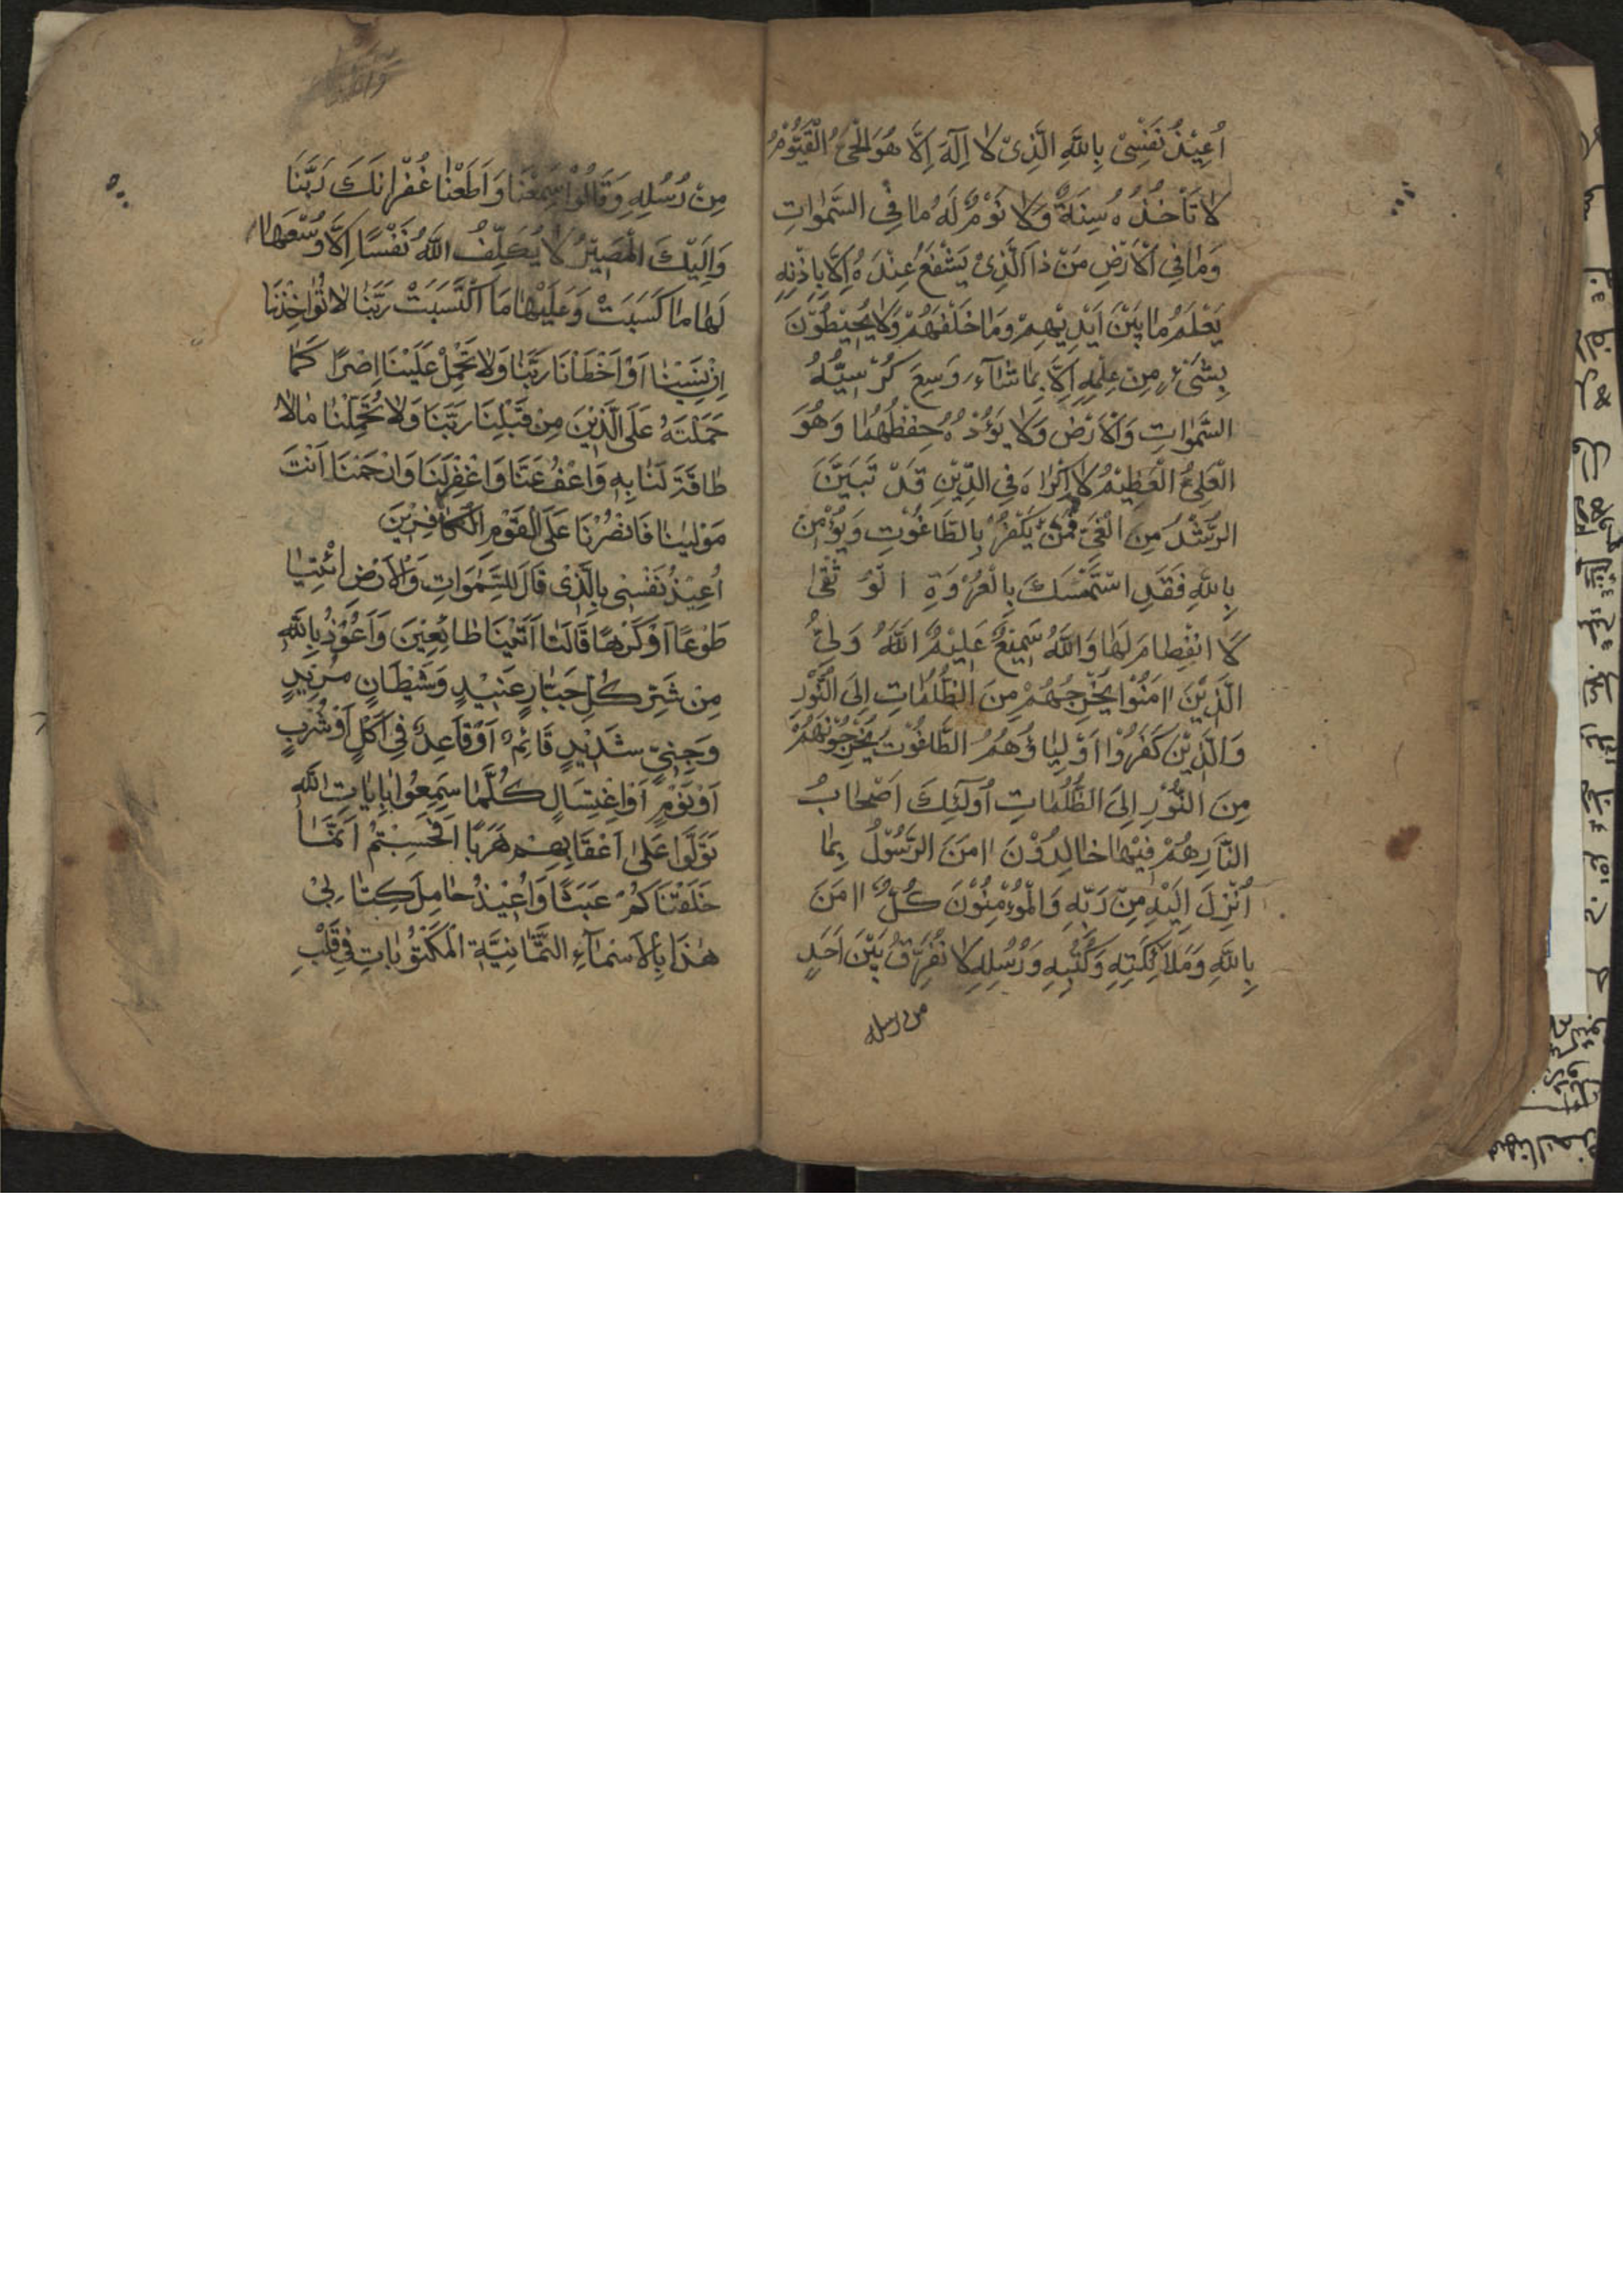 اُعِيْذُ نَفْسِىْ بِاللَّهِ الَّذِىْ لَا اِلَهَ اِلَّا هُوَ الْحَىُّ الْقَيُّوْمُ
لَا تَأْخُذُهُ سِنَةٌ وَلَا نَوْمٌ لَهُ مَا فِى السَّمٰوَاتِ
وَمَا فِى الْاَرْضِ مَنْ ذَا الَّذِىْ يَشْفَعُ عِنْدَهُ اِلَّا بِاِذْنِهِ
يَعْلَمُ مَا بَيْنَ اَيْدِيْهِمْ وَمَا خَلْفَهُمْ وَلَا يُحِيْطُوْنَ
بِشَىْءٍ مِنْ عِلْمِهِ اِلَّا بِمَا شَآءَ وَسِعَ كُرْسِيُّهُ
السَّمٰوَاتِ وَالْاَرْضَ وَلَا يَؤُدُهُ حِفْظُهُمَا وَهُوَ
الْعَلِىُّ الْعَظِيْمُ لَا اِكْرَاهَ فِى الدِّيْنِ قَدْ تَبَيَّنَ
الرُّشْدُ مِنَ الْغَىِّ فَمَنْ يَكْفُرْ بِالطَّاغُوْتِ وَيُؤْمِنْ
بِاللَّهِ فَقَدِ اسْتَمْسَكَ بِالْعُرْوَةِ الْوُثْقٰى
لَا انْفِصَامَ لَهَا وَاللَّهُ سَمِيْعٌ عَلِيْمٌ اللَّهُ وَلِىُّ
الَّذِيْنَ اامَنُوْا يُخْرِجُهُمْ مِنَ الظُّلُمَاتِ اِلَى النُّوْرِ
وَالَّذِيْنَ كَفَرُوْا اَوْلِيَاؤُهُمُ الطَّاغُوْتُ يُخْرِجُوْنَهُمْ
مِنَ النُّوْرِ اِلَى الظُّلُمَاتِ اُولَئِكَ اَصْحَابُ
النَّارِ هُمْ فِيْهَا خَالِدُوْنَ اامَنَ الرَّسُوْلُ بِمَا
اُنْزِلَ اِلَيْهِ مِنْ رَبِّهِ وَالْمُؤْمِنُوْنَ كُلٌّ اامَنَ
بِاللَّهِ وَمَلَائِكَتِهِ وَكُتُبِهِ وَرُسُلِهِ لَا نُفَرِّقُ بَيْنَ اَحَدٍ
من رسله
مِنْ رُسُلِهِ وَقَالُوْا سَمِعْنَا وَاَطَعْنَا غُفْرَانَكَ رَبَّنَا
وَاِلَيْكَ الْمَصِيْرُ لَا يُكَلِّفُ اللَّهُ نَفْسًا اِلَّا وُسْعَهَا
لَهَا مَا كَسَبَتْ وَعَلَيْهَا مَا اكْتَسَبَتْ رَبَّنَا لَا تُؤَاخِذْنَا
اِنْ نَسِيْنَا اَوْ اَخْطَانَا رَبَّنَا وَلَا تَحْمِلْ عَلَيْنَا اِصْرًا كَمَا
حَمَلْتَهُ عَلَى الَّذِيْنَ مِنْ قَبْلِنَا رَبَّنَا وَلَا تُحَمِّلْنَا مَا لَا
طَاقَةَ لَنَا بِهِ وَاعْفُ عَنَّا وَاغْفِرْ لَنَا وَارْحَمْنَا اَنْتَ
مَوْلٰينَا فَانْصُرْنَا عَلَى الْقَوْمِ الْكَافِرِيْنَ
اُعِيْذُ نَفْسِى بِالَّذِىْ قَالَ لِلسَّمٰوَاتِ وَالْاَرْضِ ائْتِيَا
طَوْعًا اَوْ كَرْهًا قَالَتَا اَتَيْنَا طَائِعِيْنَ وَاَعُوْذُ بِاللَّهِ
مِنْ شَرِّ كُلِّ جَبَّارٍ عَنِيْدٍ وَشَيْطَانٍ مَرِيْدٍ
وَجِنِىٍّ شَدِيْدٍ قَائِمٍ اَوْ قَاعِدٍ فِى اَكْلٍ اَوْ شُرْبٍ
اَوْ نَوْمٍ اَوِ اغْتِسَالٍ كُلَّمَا سَمِعُوْا بِاٰيَاتِ اللَّهِ
تَوَلَّوْا عَلٰى اَعْقَابِهِمْ هَرَبًا اَفَحَسِبْتُمْ اَنَّمَا
خَلَقْنَاكُمْ عَبَثًا وَاُعِيْذُ حَامِلَ كِتَابِىْ
هٰذَا بِالْاَسْمَآءِ الثَّمَانِيَّةِ الْمَكْتُوْبَاتِ فِى قَلْبِ